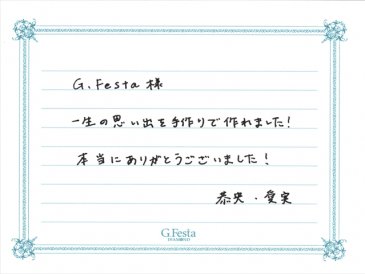 G.Festa 様
一生の思い出を手作りで作れました!
本当にありがとうございました!
恭央・愛実
G.Festa
DIAMOND